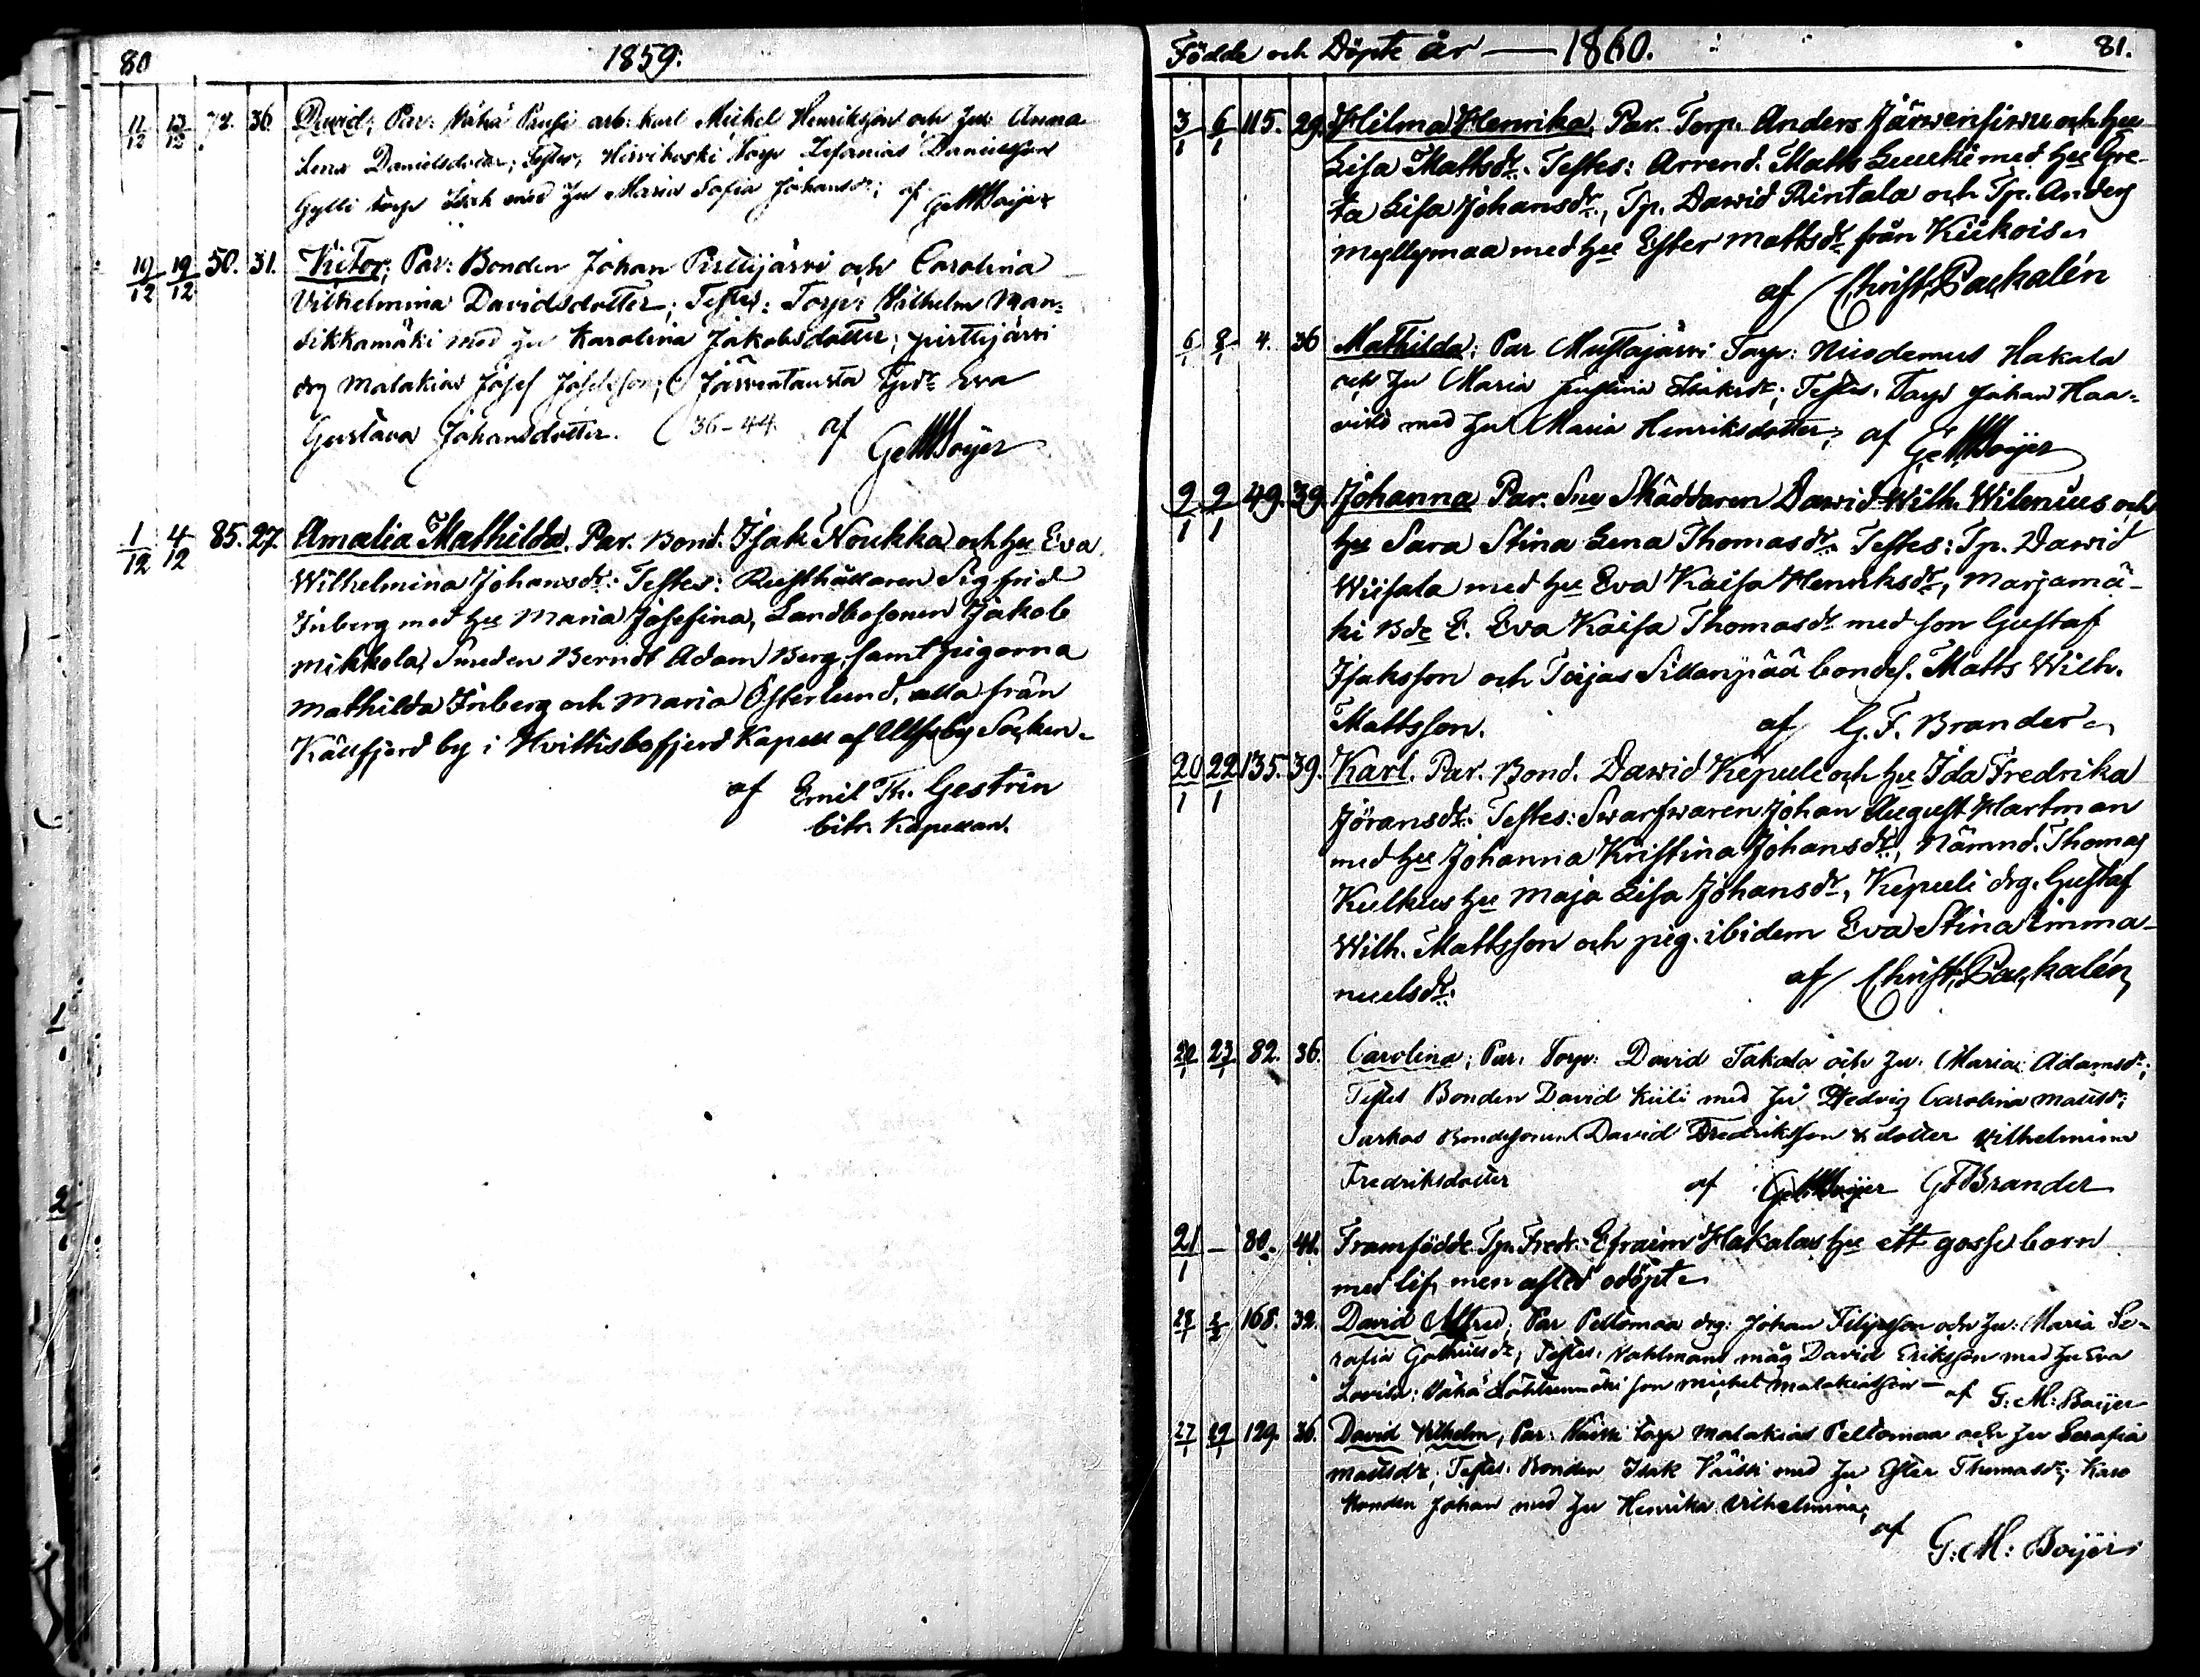 80
1859:
11/12 13/12 72. 36. David; Par: Vähä Prusi arb. karl Michel Henriksson och hu: Anna
Lena Danielsdotter; Testes, Hirvikoski Torp Zefanias Danielsson
Gylli torp Isak med hu Maria Sofia Johansdr; af G M Boijer
10/12 19/12 50. 31. Victor; Par: Bonden Johan Pirttijärvi och Carolina
Vilhelmina Davidsdotter; Testes: Torp: Vilhelm Man=
sikkamäki med hu Karolina Jakobsdotter; pirttijärvi
drg Malakias Josef Josefsson; Järventausta Tjedr Eva
Gustava Johansdotter. (36-44. af
G M Boijer
1/12 4/12 85. 27. Amalia Mathilda. Par. Bond. Isak Noukka och hu Eva
Wilhelmina Johansdr. Testes: Rusthållaren Sigfrid
Inberg med hu Maria Josefina, Landbosonen Jakob
Mikkola, Smeden Berndt Adam Berg, samt pigorna
Mathilda Inberg och Maria Österlund, alla från
Källfjerd by i Hvittisbofjerd Kapell af Ulfsby Socken.
af Emil Th. Gestrin
bitr. Kapellan.
Födde och Döpte år — 1860.
81.
3/1 6/1 115. 29. Hilma Henrika, Par. Torp. Anders Järwensiwu och hu
Lisa Mattsdr. Testes: Arrend. Matts Luuki med hu Gre-
ta Lisa Johansdr., Tp. Dawid Rintala och Tp. Anders
Myllymaa med hu Ester Mattsdr från Kiikois.
af Christ. Packalén
6/1 8/1 4. 36 Mathilda; Par Mustajärvi Torp: Nicodemus Hakala
och hu Maria Justina Isaksdr; Testes, Torp Johan Haa=
visto med hu Maria Henriksdotter; af G. M Boijer
9/1 9/1 49. 39. Johanna Par. Sne Skräddaren Dawid Wilh. Wilenius och
hu Sara Stina Lena Thomasdr. Testes: Tp. Dawid
Wiisala med hu Eva Kaisa Henriksdr, Marjamä-
ki Bde E. Eva Kaisa Thomasdr med son Gustaf
Isaksson och Toijas Sillanpää bondes. Matts Wilh.
Mattsson. af G. F. Brander
20/1 22/1 135. 39. Karl. Par. Bond. Dawid Kepuli och hu Ida Fredrika
Jöransdr. Testes: Swarfwaren Johan August Hartman
med hu Johanna Kristina Johansdr, Nämnd. Thomas
Kulkus hu Maja Lisa Johansdr, Kepuli drg. Gustaf
Wilh. Mattsson och pig. ibidem Eva Stina Emma-
nuelsdr. af Christ. Packalén
20/1 23/1 82. 36. Carolina; Par: Torp: David Takala och hu. Maria Adamsdr;
Testes Bonden David Kuli med hu Hedvig Carolina Mattsdr;
Sarkos Bondesonen David Fredriksson & dotter Vilhelmina
Fredriksdotter af G M Boijer G F Brander
21/1 — 80. 41. Framfödde Tp. Fredr. Efraim Hakalas hu ett gossebarn
med lif, men afled odöpt
28/1 2/2 168. 32. David Alfred; Par Peltomaa drg: Johan Filipsson och hu: Maria Se-
rafia Gabrielsdr; Testes, Vahlmans måg David Eriksson med hu Eva
Lovisa: Vähä son Michel Malakiasson — af G: M: Boijer
27/1 29/1 129. 36. David Vilhelm, Par: Torp Malakias Peltomaa och hu Serafia
Mattsdr; Testes: Bonden Isak med hu Ester Thomasdr; Karo
Bonden Johan med hu Henrika Vilhelmina;
af
G: M: Boijer